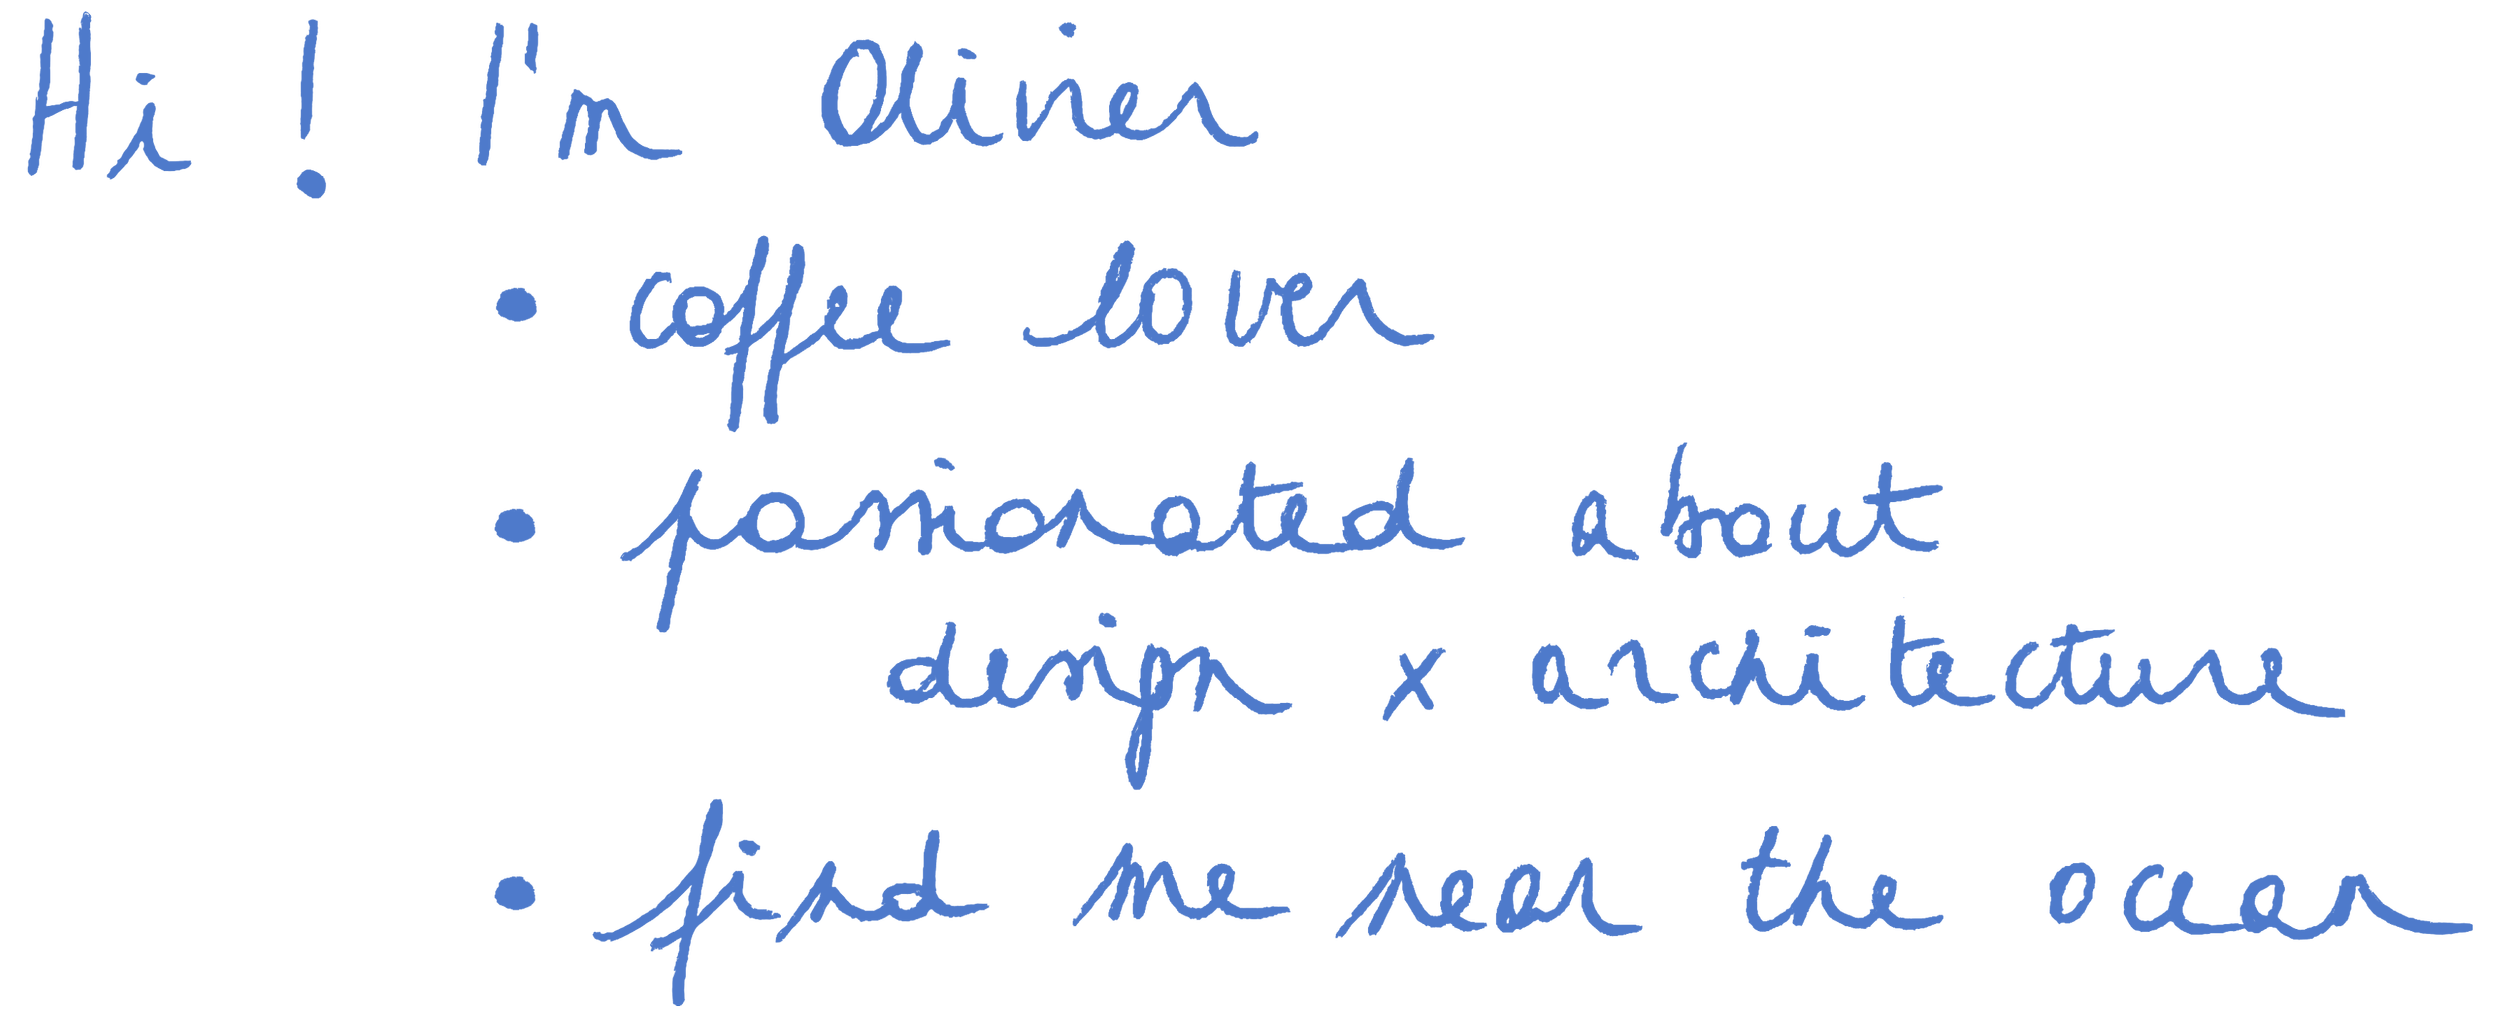 Hi ! I'm Olivier
• coffee lover
• passionated about
design x architecture
• find me near the ocean